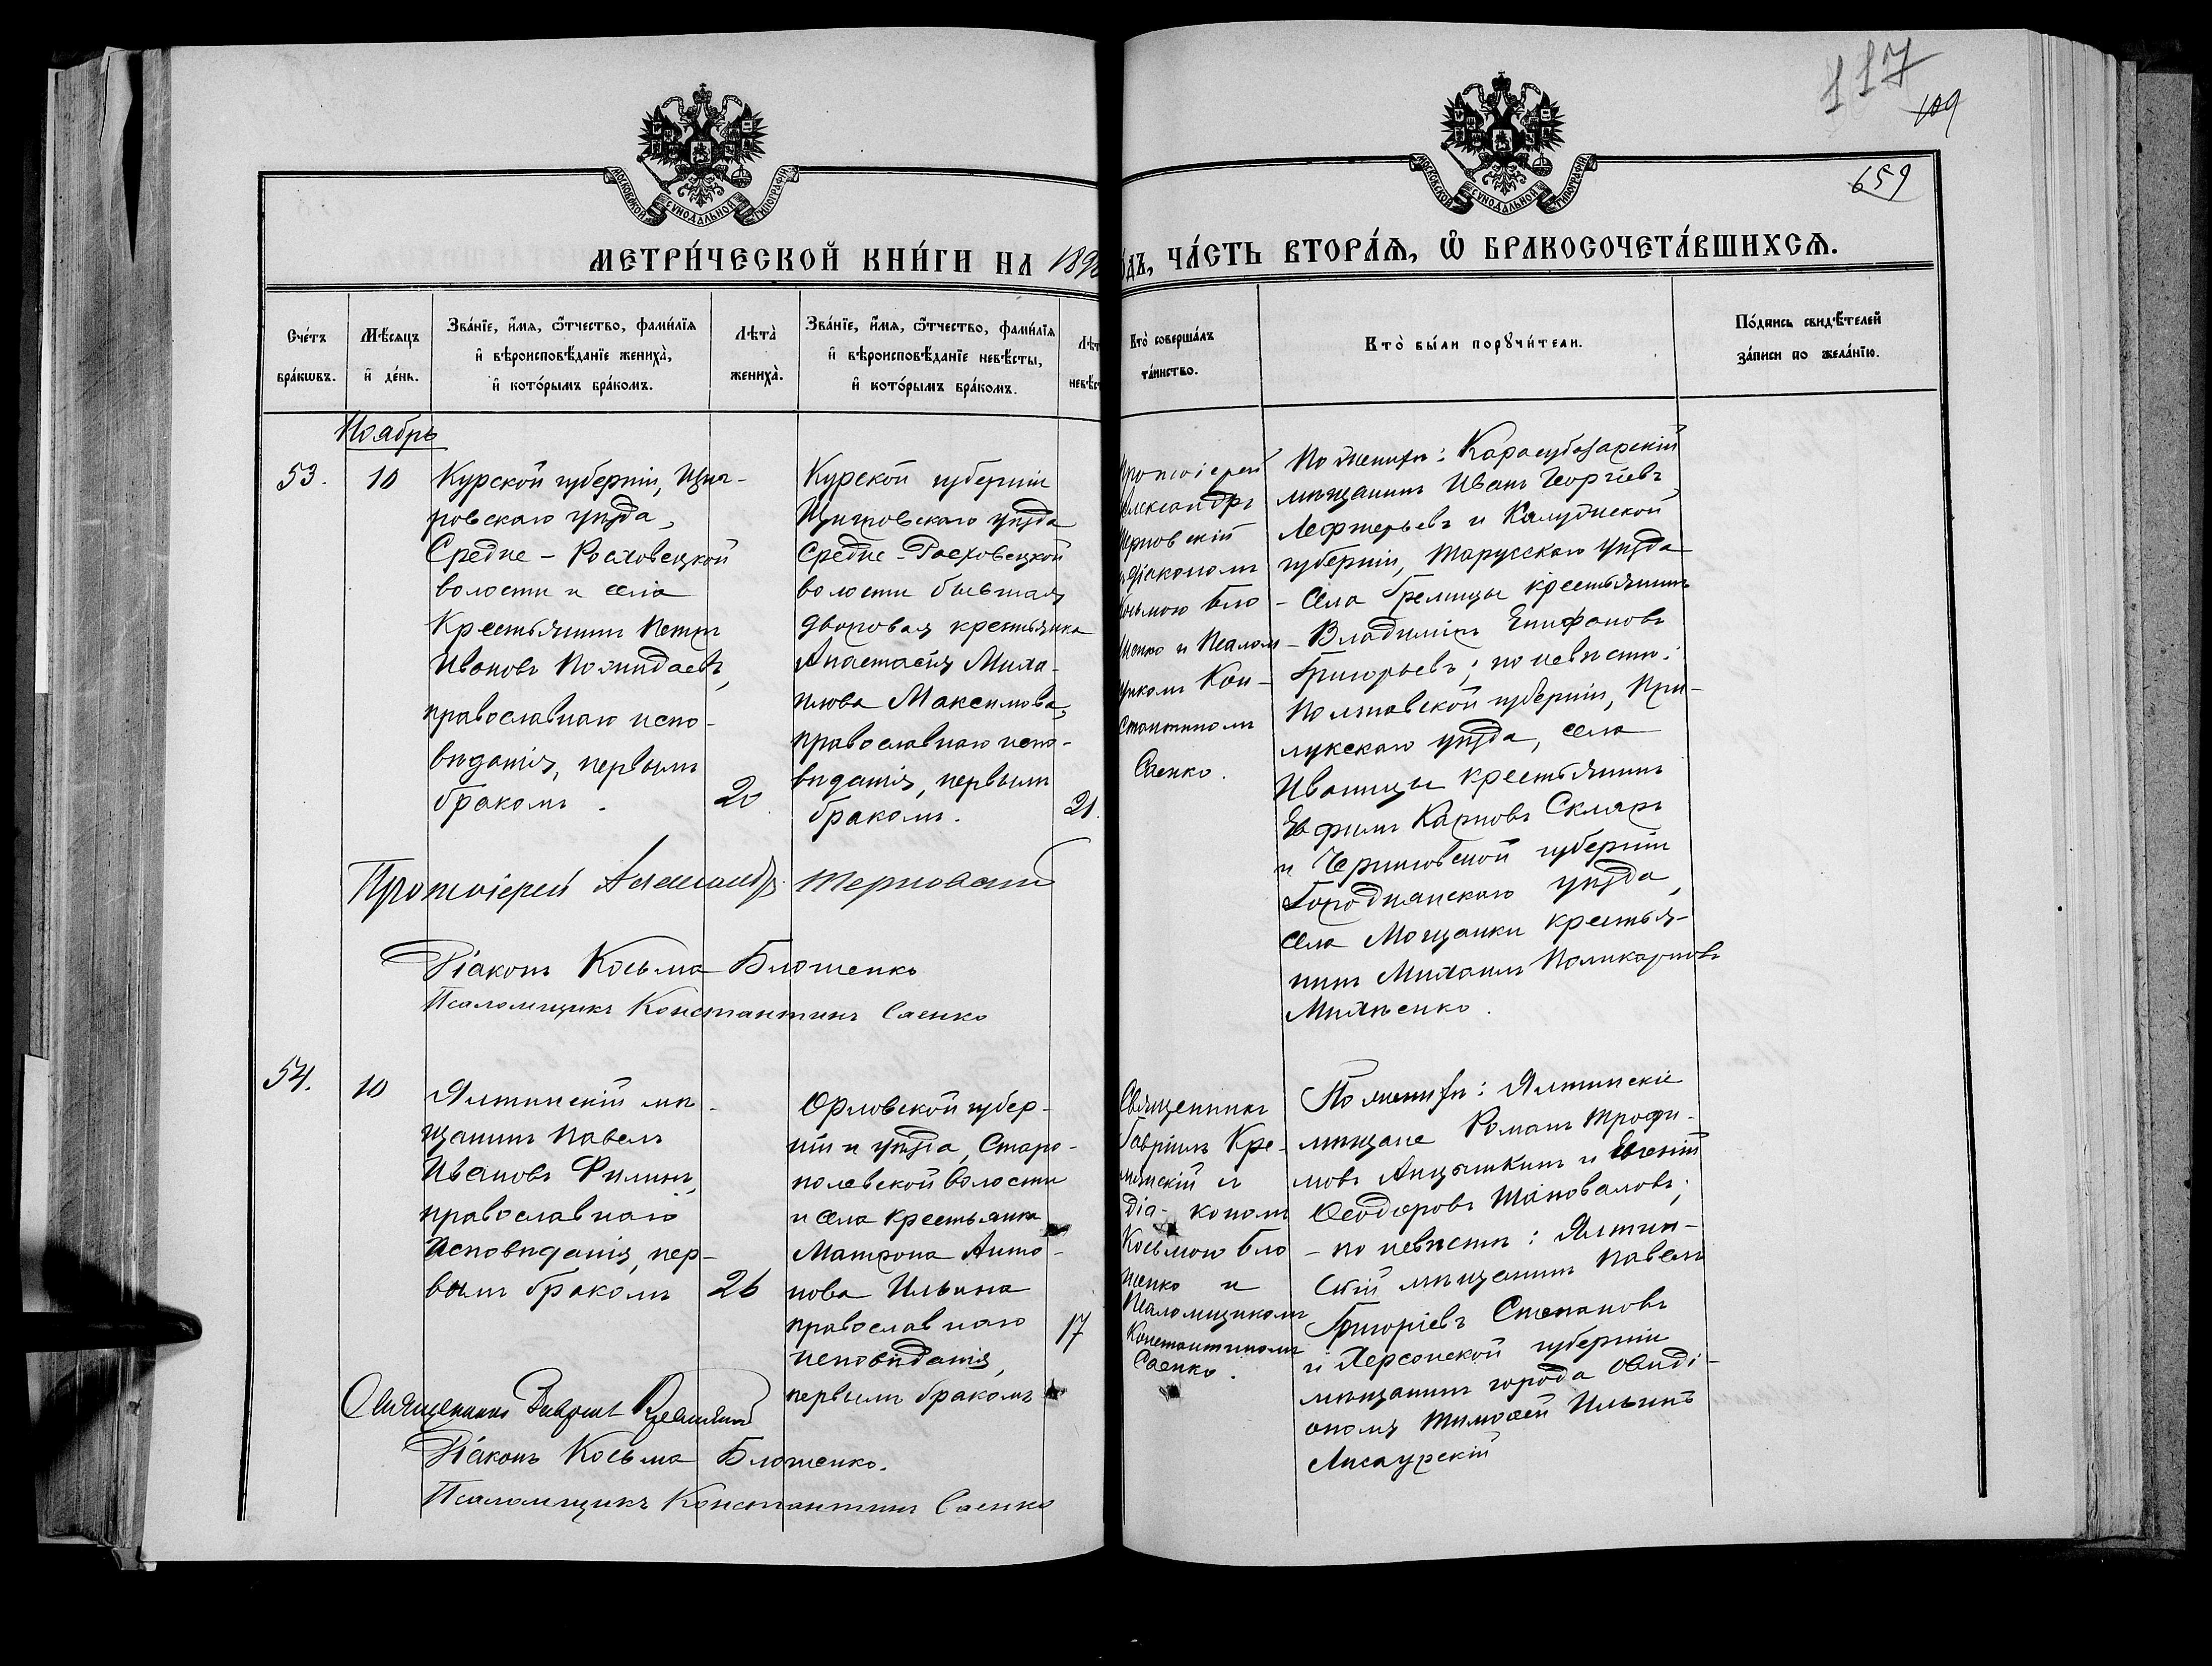 117
109
659
МОСКОВСКОЙ СѴНОДАЛЬНОЙ ТИПОГРАФІИ
МОСКОВСКОЙ СѴНОДАЛЬНОЙ ТИПОГРАФІИ
МЕТРИ́ЧЕСКОЙ КНИ́ГИ НА 189
ДЪ, ЧА́СТЬ ВТОРА́Ѧ, Ѡ҆ БРАКОСОЧЕТА́ВШИХСѦ.
Сче́тъ бра́кѡвъ.
Мѣ́сяцъ и҆ де́нь.
Зва́нїе, и҆́мѧ, ѻ҆́тчество, фами́лїѧ
и҆ вѣроисповѣ́данїе жениха̀,
и҆ кото́рымъ бра́комъ.
Лѣта̀ жениха̀.
Зва́нїе, и҆́мѧ, ѻ҆́тчество, фами́лїѧ
и҆ вѣроисповѣ́данїе невѣ́сты,
и҆ кото́рымъ бра́комъ.
Лѣт
невѣст
Кто̀ соверша́лъ
та́инство.
Кто̀ бы́ли порꙋчи́тели.
По́дпись свидѣ́телей
за́писи по жела́нїю.
Ноябрь
53.
10
Курской губерніи, Щиг-
ровскаго уѣзда,
Средне-Расховецкой
волости и села
Крестьянинъ Петръ
Ивановъ
православнаго испо-
вѣданія, первымъ
бракомъ.
20
Курской губерніи
Щигровскаго уѣзда
Средне-Расховецкой
волости бывшая
дворовая крестьянка
Анастасія Миха-
илова Максимова,
православнаго испо-
вѣданія, первымъ
бракомъ.
21.
Протоіерей
Александръ
Терновскій
діакономъ
Косьмою Бло-
шенко и Псалом-
щикомъ Кон-
стантиномъ
Саенко.
По женихѣ: Карасубазарскій
мѣщанинъ Иванъ Георгіевъ
Лефтерьевъ и Калужской
губерніи, Тарусскаго уѣзда
села крестьянинъ
Владиміръ Епифановъ
Григорьевъ; по невѣстѣ:
Полтавской губерніи, При-
лукскаго уѣзда, села
Иваницы крестьянинъ
Ефимъ Карповъ Скляръ
и Черниговской губерніи
Городнянскаго уѣзда,
села Мощанки крестья-
нинъ Михаилъ Поликарповъ
Михѣенко.
Протоіерей Александръ Терновскій
Діаконъ Косьма Блошенко
Псаломщикъ Константинъ Саенко
54.
10
Ялтинскій мѣ-
щанинъ Павелъ
Ивановъ Филинъ,
православнаго
исповѣданія, пер-
вымъ бракомъ
26
Орловской губер-
ніи и уѣзда, Старо-
полевской волости
и села крестьянка
Матрона Анто-
нова Ильина
православнаго
исповѣданія,
первымъ бракомъ
17
Священникъ
Гавріилъ Кре-
мянскій и
діа- кономъ
Косьмою Бло-
шенко и
Псаломщикомъ
Константиномъ
Саенко.
По женихѣ: Ялтинскіе
мѣщане Романъ Трофи-
мовъ и Евгеній
Ѳеодоровъ Шаповаловъ;
по невѣстѣ: Ялтин-
скій мѣщанинъ Павелъ
Григоріевъ Степановъ
и Херсонской губерніи
мѣщанинъ города Овиді-
ополя Тимоѳей Ильинъ
Священникъ Гавріилъ
Діаконъ Косьма Блошенко.
Псаломщикъ Константинъ Саенко